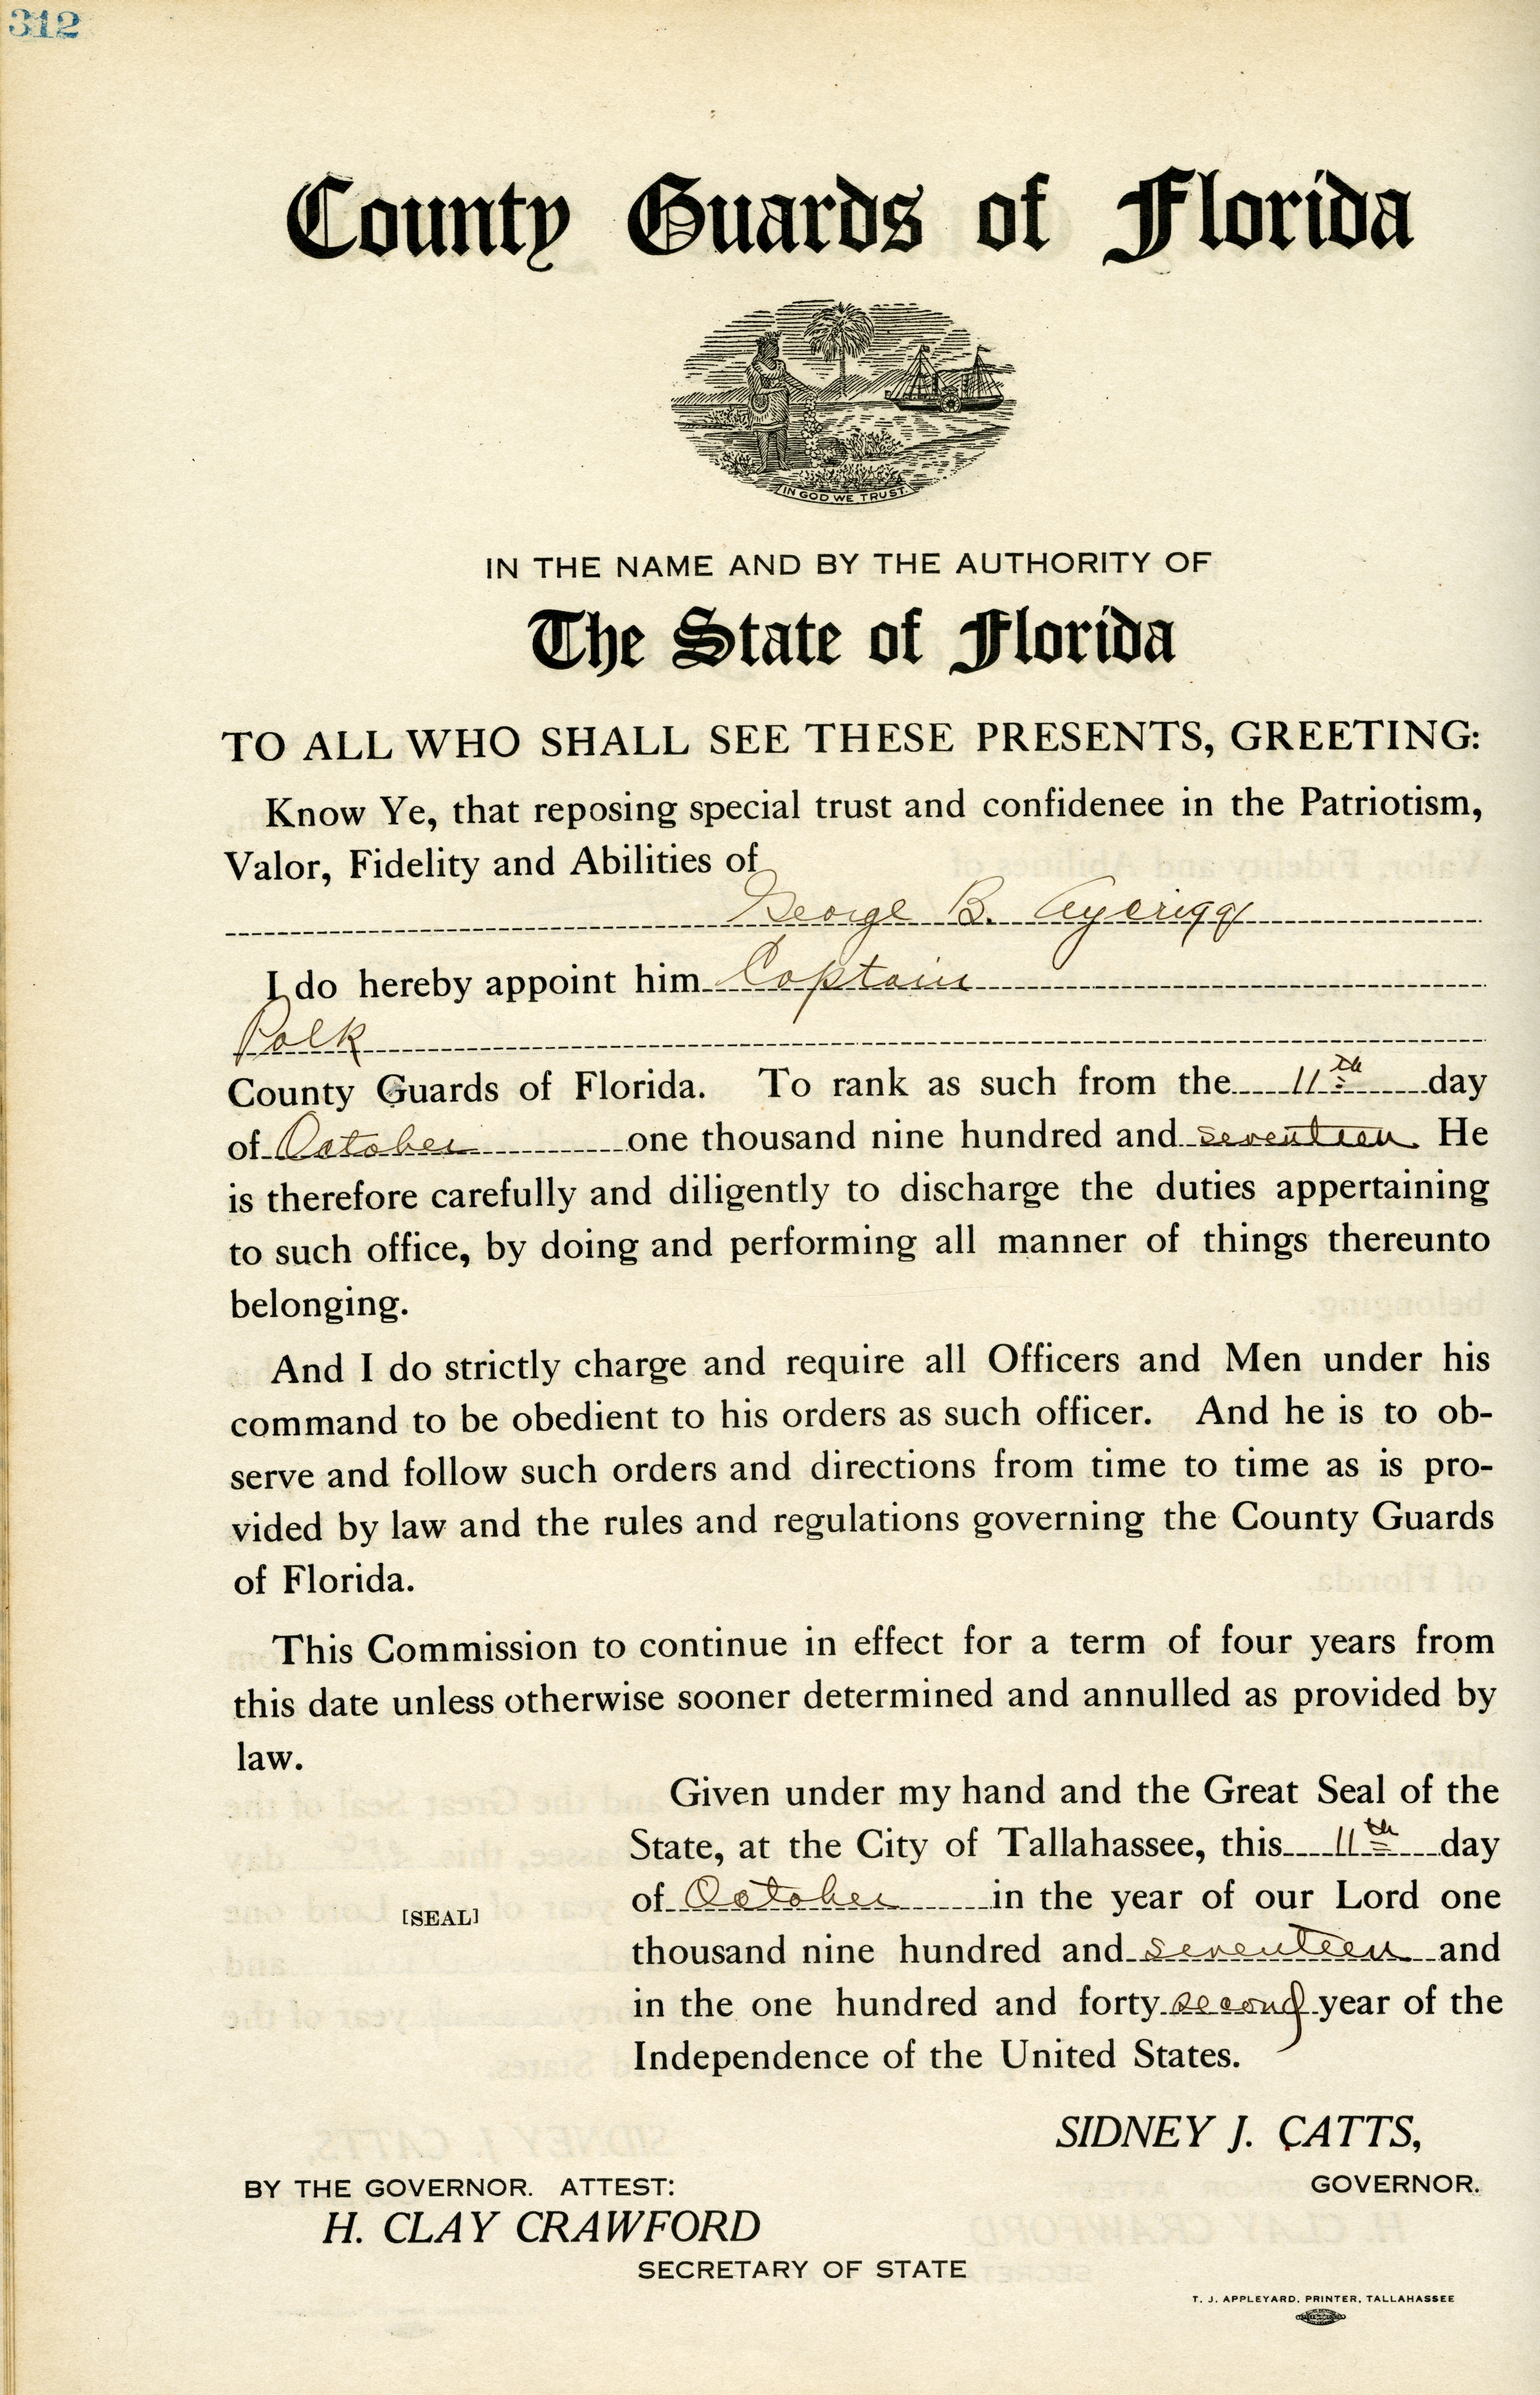 312
County Guards of Florida
IN GOD WE TRUST.
IN THE NAME AND BY THE AUTHORITY OF
The State of Florida
TO ALL WHO SHALL SEE THESE PRESENTS, GREETING:
Know Ye, that reposing special trust and confidenee in the Patriotism,
Valor, Fidelity and Abilities of
George B. Aycrigg
I do hereby appoint him Captain
Polk
County Guards of Florida. To rank as such from the 11th day
of October one thousand nine hundred and seventeen He
is therefore carefully and diligently to discharge the duties appertaining
to such office, by doing and performing all manner of things thereunto
belonging.
And I do strictly charge and require all Officers and Men under his
command to be obedient to his orders as such officer. And he is to ob-
serve and follow such orders and directions from time to time as is pro-
vided by law and the rules and regulations governing the County Guards
of Florida.
This Commission to continue in effect for a term of four years from
this date unless otherwise sooner determined and annulled as provided by
law.
Given under my hand and the Great Seal of the
State, at the City of Tallahassee, this 11th day
of October in the year of our Lord one
[SEAL]
thousand nine hundred and seventeen and
in the one hundred and forty second year of the
Independence of the United States.
SIDNEY J. CATTS,
GOVERNOR.
BY THE GOVERNOR. ATTEST:
H. CLAY CRAWFORD
SECRETARY OF STATE
T. J. APPLEYARD, PRINTER, TALLAHASSEE